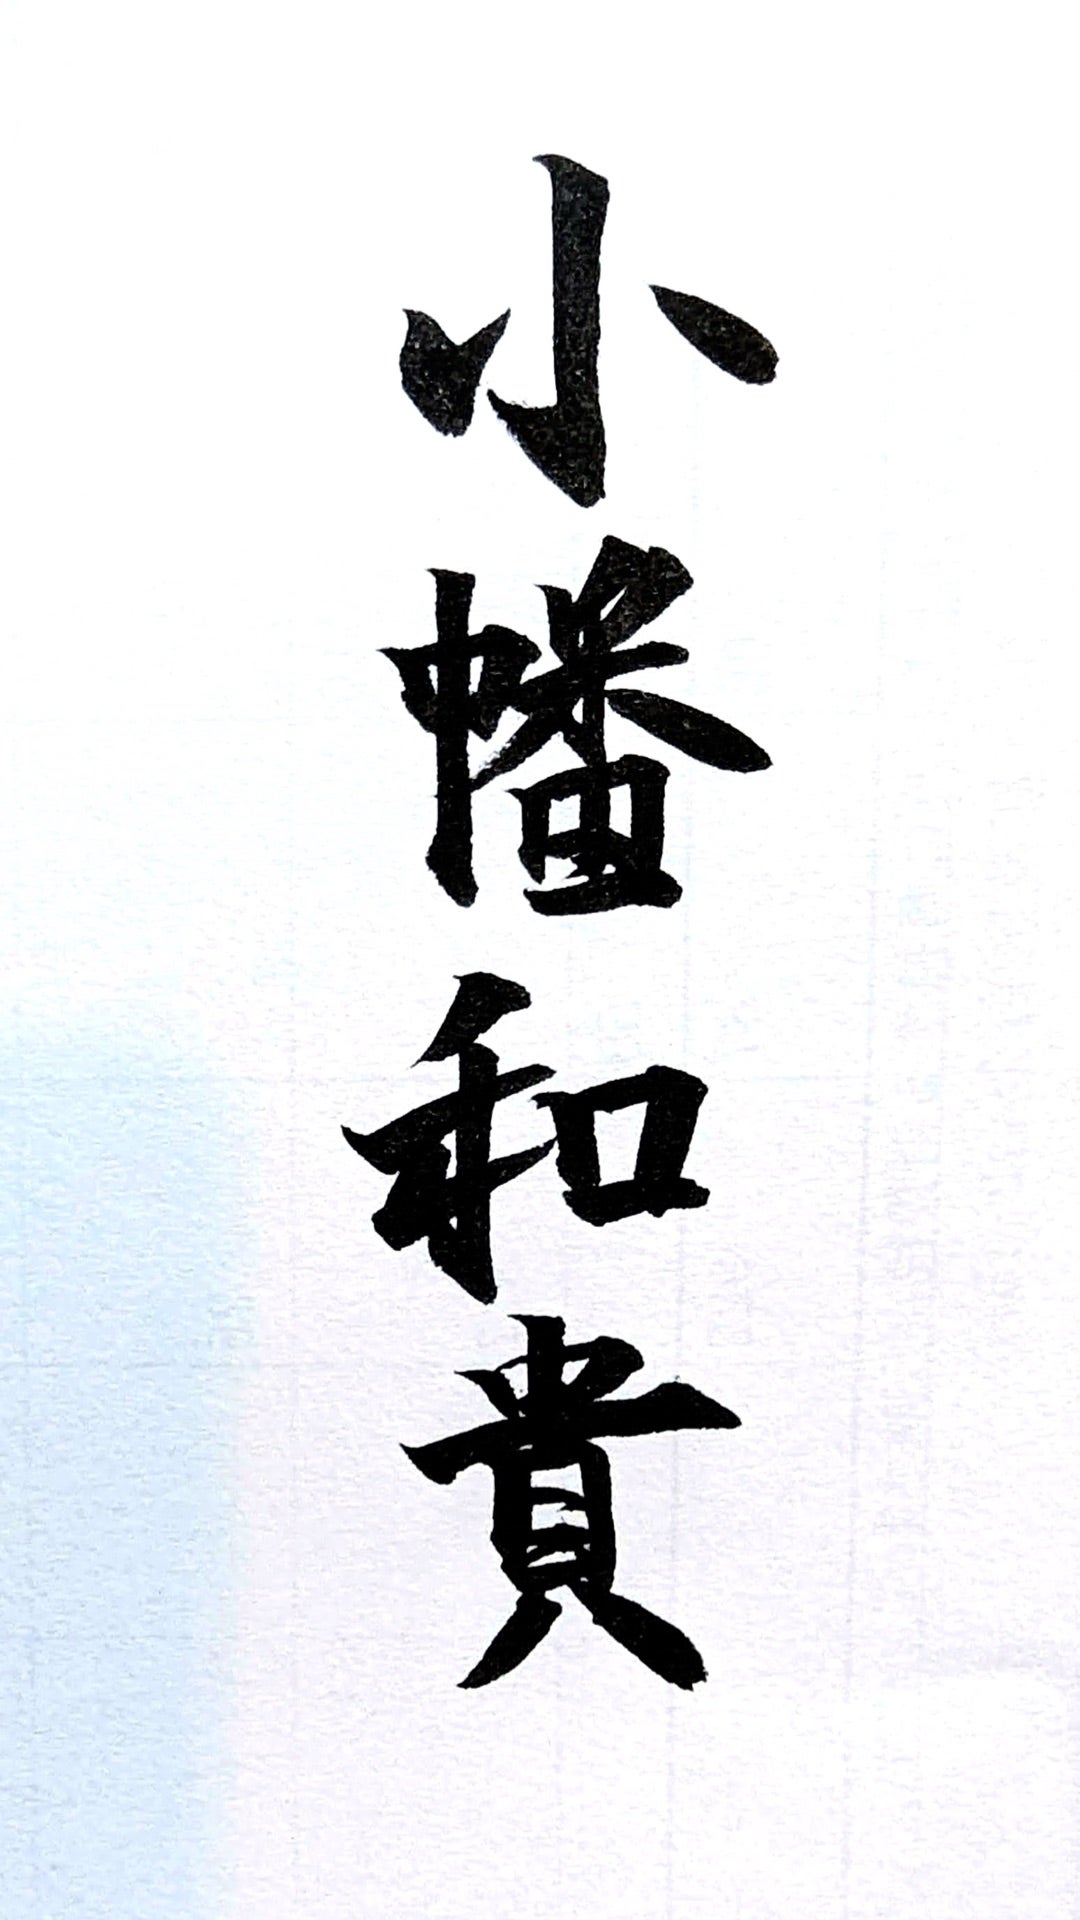 小幡和貴